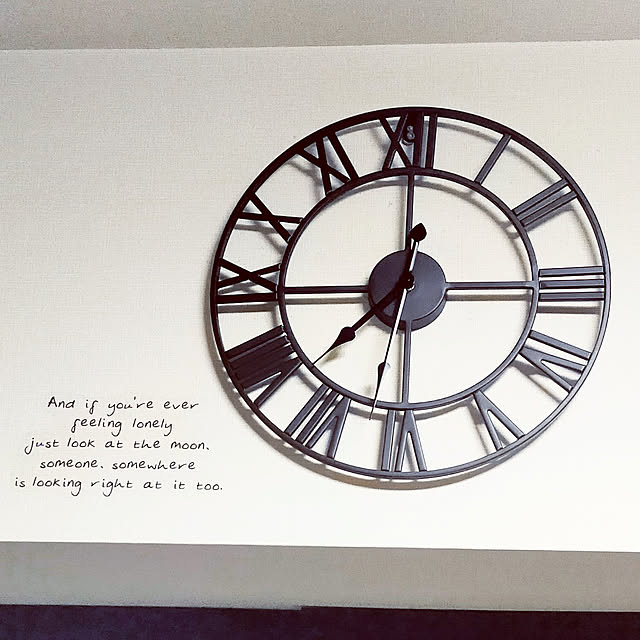 And if you're ever
feeling lonely
just look at the moon.
someone. somewhere
is looking right at it too.
XII
I
II
III
IIII
V
VI
VII
VIII
IX
X
XI